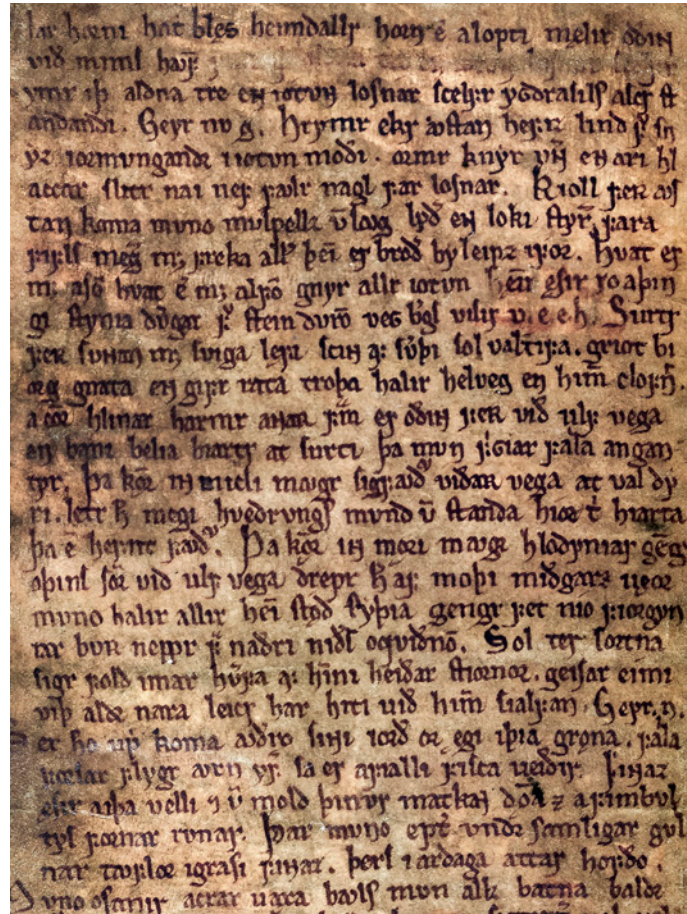 lar horni hat bleſ heimdallr horn ē alopti melir oðin
við mimſ
ymr iþ aldna tre en iotvn loſnar ſcelfr ygdraſilſ aſcr ſt
andandi. Geyr nv g. Hrymr ekr aꜹſtan hefiz lind f̄ ſn
yz iormungandr i iotvn moði. ormr knyr vn̄ en ari hl
accar ſlitr nai nef fꜹlr nagl far loſnar. Kioll ferr ꜹſ
tan koma muno muſpellz v̄ lꜹg lyð en loki ſtyr̄. fara
fiflſ meg m; freka all' þeir er broð byleipz ifor. Hvat er
m; aſō hvat ē m; alfō gnyr allr iotvn heī eſir ro aþin
gi ſtynia dv̄gar f̄ ſtein dvrō veg b̄gſ viſir v. e. e. h. Surtr
ferr ſunan m; ſviga lefi ſcin af ſv̄þi ſol valtifa. griot bi
org gnata en gifr rata troþa halir helveg en him̄ clofn̄.
a cōr hlinar harmr anaR frā er oðin ferr við ulf vega
en bani belia biartr at ſurti þa mvn friGiar falla angan
tyr. Þa kōr in micli mꜹgr ſigfꜹð' viðaR vega at val dy
ri. letr h̄ megi hveðrungſ mund v̄ ſtanda hior t̄ hiarta
þa ē hefnt fꜹð'. Þa kōr iN mori mꜹgr hloðyniar geng̃
oþinſ ſōr við ulf vega drepr h̄ af moþi miðgarz veor
muno halir allir hei ſtoð ryþia gengr fet nio fiorgyn
iar burr neppr f̄ naðri niðſ oqviðnō. Sol ter ſortna
ſigr fold imar hv̄fa af h̄ni heiðar ſtiornor. geiſar eimi
viþ aldr nara leicr har hiti við him̄ ſialfan. Geyr. n.
er ho up koma ꜹðro ſini iorð or egi iþia grona. falla
forſar flygr ꜹrn yf̄. ſa er afialli fiſca veiðir. Finaz
eſir aiþa velli ⁊ v̄ mold þinur matkan dōa ⁊ a fimbul
tyſ fornar runar. Þar muno ept̄ undr ſamligar gul
nar tꜹflor igraſi finaz. þerſ iardaga attar hofðo.
Muno oſanir acrar vaxa bꜹlſ mun allz batna baldr